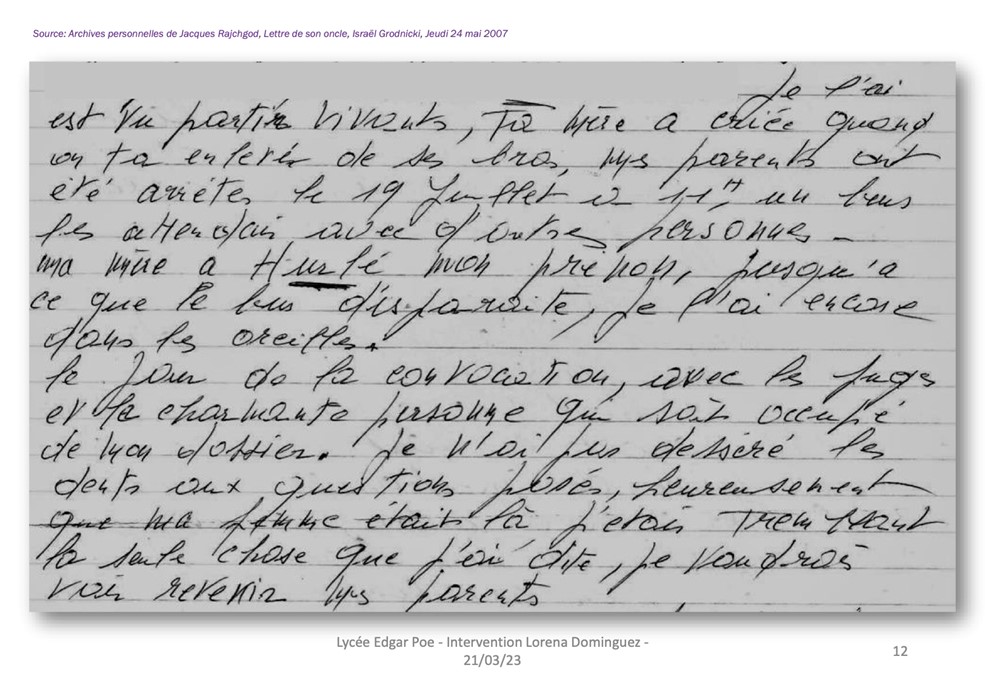 Source: Archives personnelles de Jacques Rajchgod, Lettre de son oncle, Israël Grodnicki, Jeudi 24 mai 2007
Je l'ai
est vu partir vivants, Ta mère a criée quand
on ta enlevés de ses bras, mes parents ont
été arrétes le 19 Juillet a 11H, un bus
les attendais avec d'autres personnes -
ma mère a Hurlé mon prénon, jusqu'a
ce que le bus disparaite, je l'ai encore
dans les oreilles.
le jour de la convocation, avec les juges
et la charmante personne qui sait occupé
de mon dossier. Je n'ai pas desséré les
dents aux questions posés, heureusement
que ma femme était là j'etais Tremblant
la seule chose que j'ai dite, je voudrais
voir revenir mes parents
Lycée Edgar Poe - Intervention Lorena Dominguez -
21/03/23
12